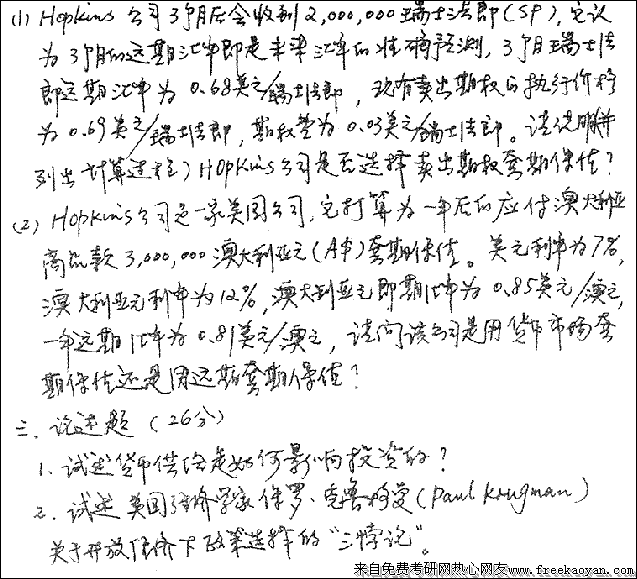 (1) Hopkins公司3个月后会收到2,000,000瑞士法郎(SF),它认
为3个月的远期汇率即是未来汇率的准确预测,3个月瑞士法
郎远期汇率为0.68美元/瑞士法郎,现有卖出期权的执行价格
为0.69美元/瑞士法郎,期权费为0.03美元/瑞士法郎。请说明(并
列出计算过程)Hopkins公司是否选择卖出期权套期保值?
(2) Hopkins公司是一家美国公司,它打算为一年后的应付澳大利亚
商品款3,000,000澳大利亚元(A$)套期保值。美元利率为7%,
澳大利亚元利率为12%,澳大利亚元即期汇率为0.85美元/澳元,
一年远期汇率为0.81美元/澳元,请问该公司是用货币市场套
期保值还是用远期套期保值?
三.论述题(26分)
1.试述货币供给是如何影响投资的?
2.试述美国经济学家保罗·克鲁格曼(Paul Krugman)
关于开放经济下政策选择的“三悖论”。
来自免费考研网热心网友www.freekaoyan.com